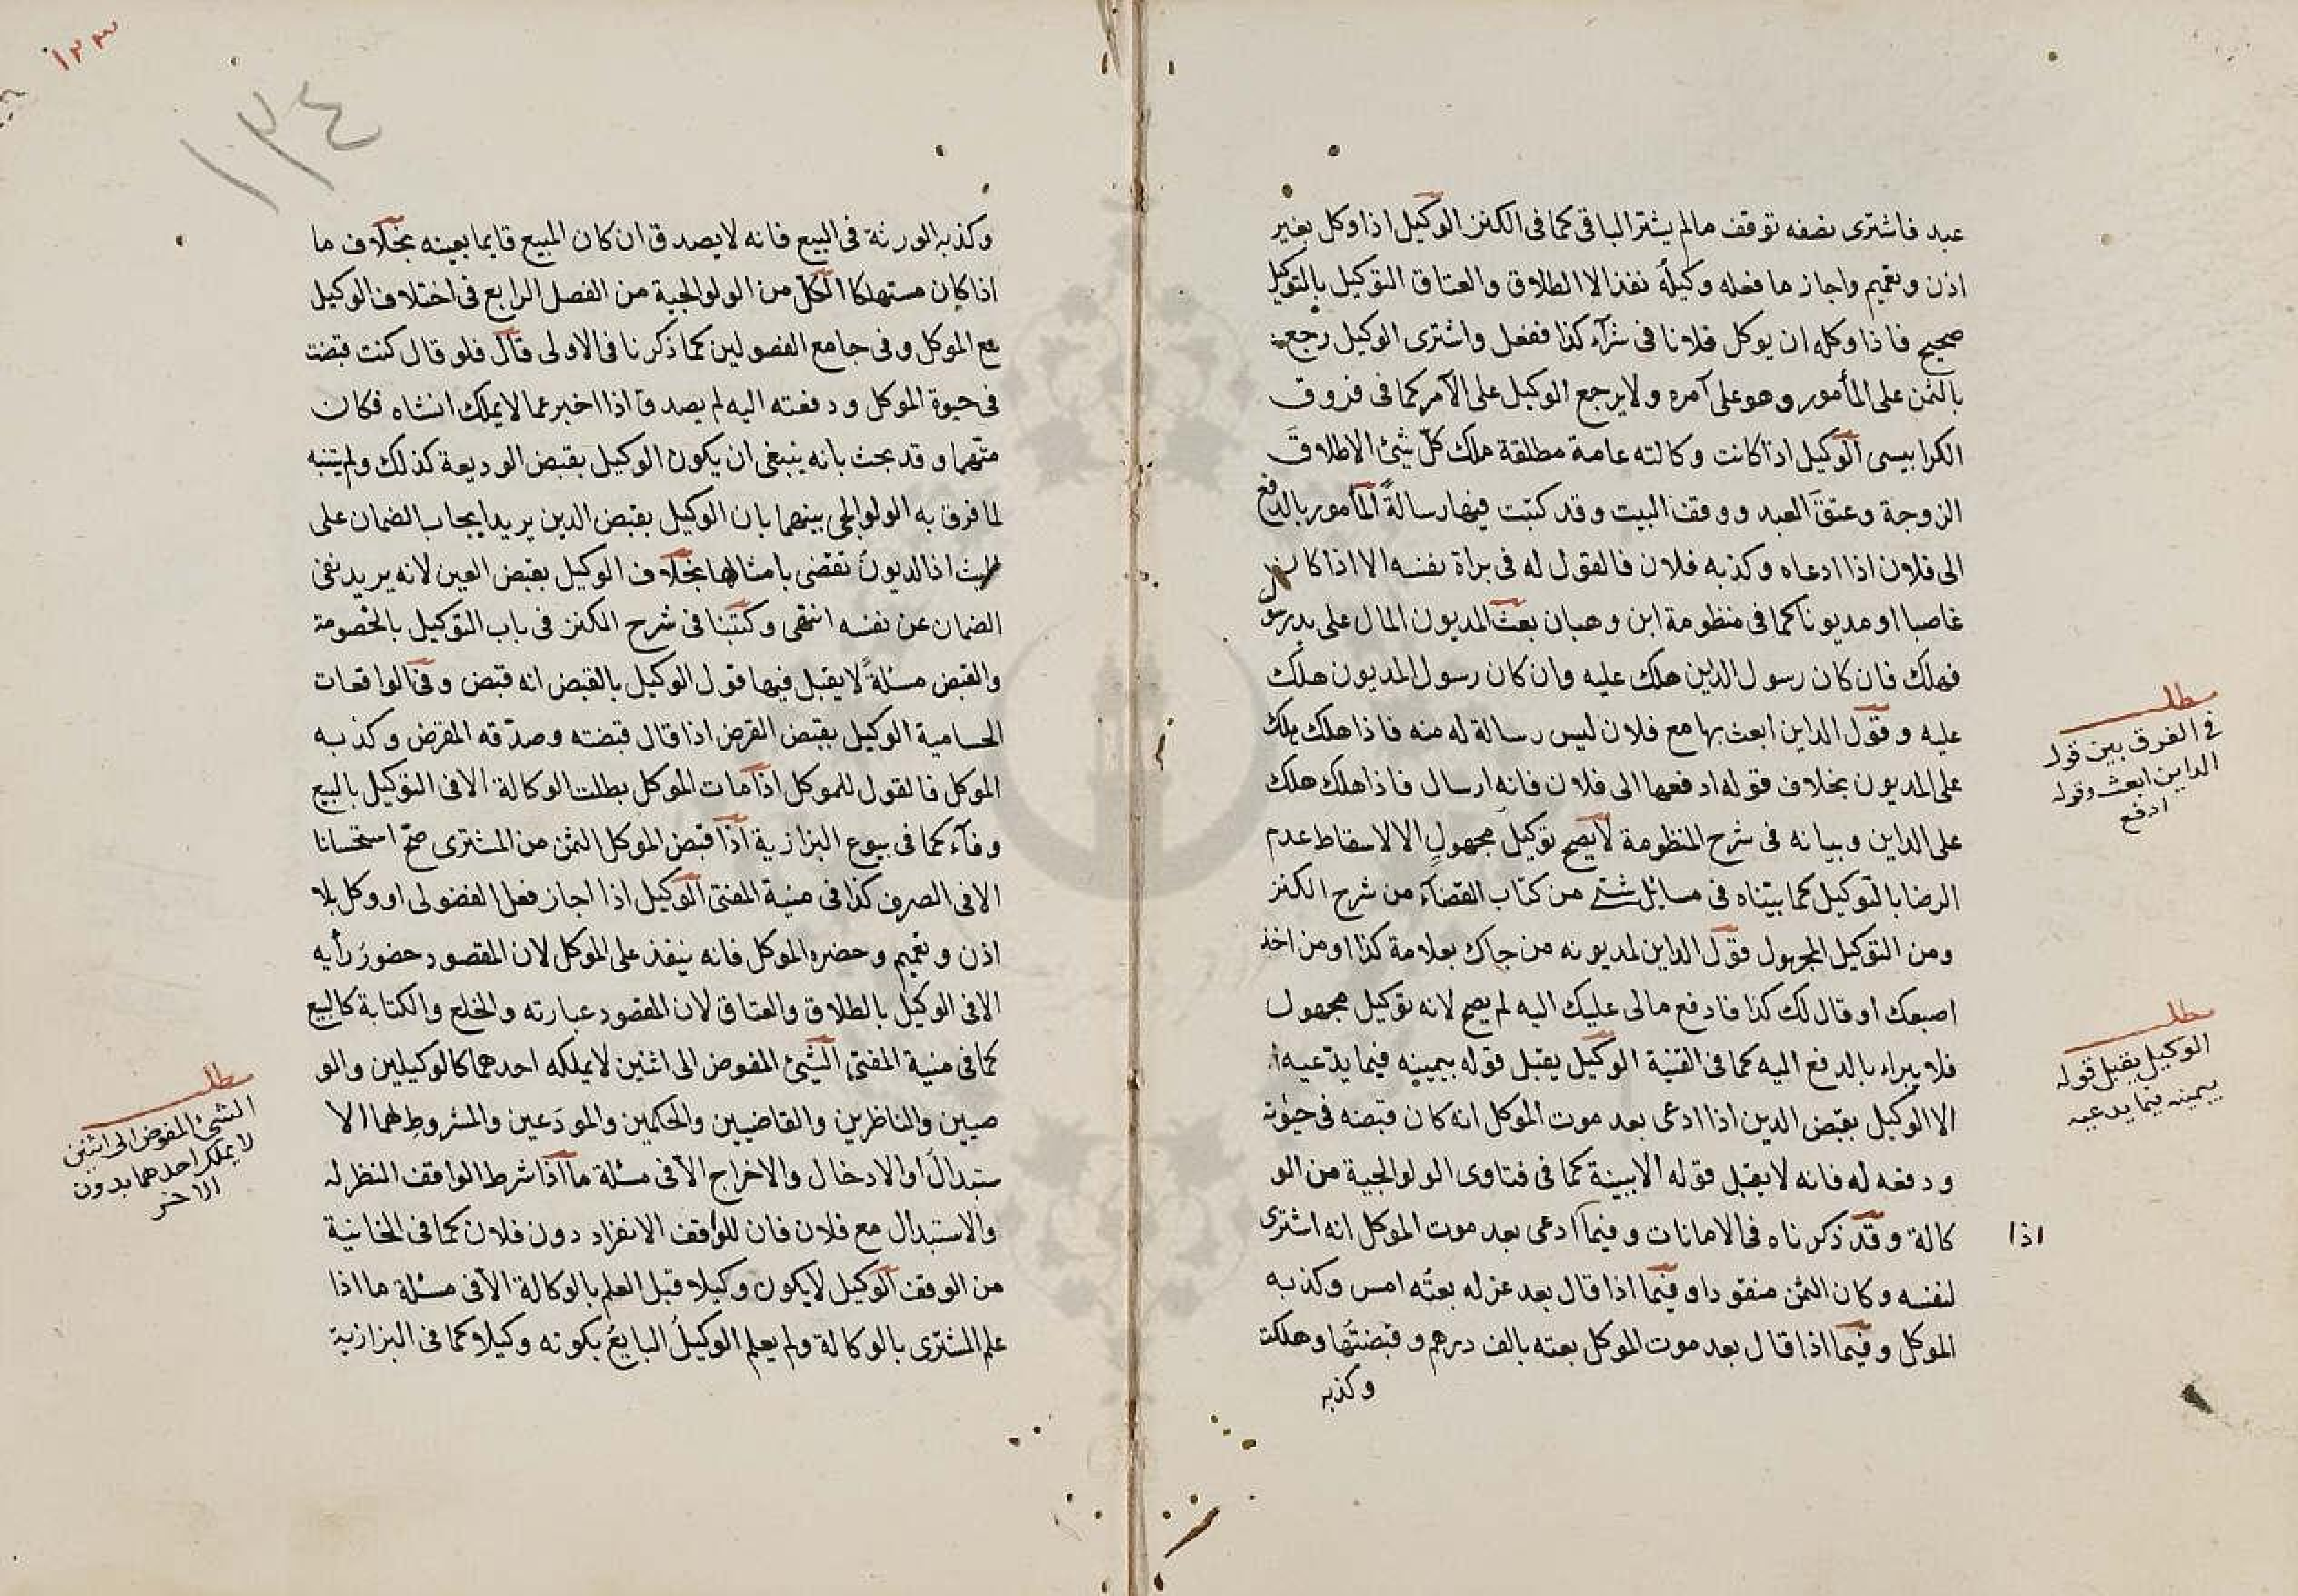 عبد فاشترى نصفه توقف مالم يشتر الباقى كما فى الكنز الوكيل اذا وكل بغير
اذن وتعميم واجاز ما فعله وكيله نفذ الا الطلاق والعتاق التوكيل بالتوكيل
صحيح فاذا وكله ان يوكل فلانا فى شرآء كذا ففعل واشترى الوكيل رجع
بالثمن على المأمور وهو على آمره ولا يرجع الوكيل على الآمر كما فى فروق
الكرابيسى الوكيل اذا كانت وكالته عامة مطلقة ملك كل شئ الا طلاق
الزوجة وعتق العبد ووقف البيت وقد كتبت فيها رسالة المأمور بالدفع
الى فلان اذا ادعاه وكذبه فلان فالقول له فى براة نفسه الا اذا كان
غاصبا او مديونا كما فى منظومة ابن وهبان بعث المديون المال على يد رسول
فهلك فان كان رسول الداين هلك عليه وان كان رسول المديون هلك
عليه وقول الداين ابعث بها مع فلان ليس رسالة له منه فاذا هلك هلك
على المديون بخلاف قوله ادفعها الى فلان فانه ارسال فاذا هلك هلك
على الداين وبيانه فى شرح المنظومة لا يصح توكيل مجهول الا لاسقاط عدم
الرضا بالتوكيل كما بيناه فى مسائل شتى من كتاب القضآء من شرح الكنز
ومن التوكيل المجهول قول الداين لمديونه من جاك بعلامة كذا او من اخذ
اصبعك او قال لك كذا فادفع مالى عليك اليه لم يصح لانه توكيل مجهول
فلا يبراء بالدفع اليه كما فى القنية الوكيل يقبل قوله بيمينه فيما يدعيه
الا الوكيل بقبض الدين اذا ادعى بعد موت الموكل انه كان قبضه فى حيوته
ودفعه له فانه لا يقبل قوله الا ببينة كما فى فتاوى الولوالجية من الو
كالة وقد ذكرناه فى الامانات وفيما ادعى بعد موت الموكل انه اشترى
لنفسه وكان الثمن منقودا وفيما اذا قال بعد عزله بعته امس وكذبه
الموكل وفيما اذا قال بعد موت الموكل بعته بالف درهم وقبضتها وهلكت
وكذبه
مطلب
فى الفرق بين قول
الداين ابعث وقوله
ادفع
مطلب
الوكيل يقبل قوله
بيمينه فيما يدعيه
اذا
١٣٣
١٣٤
وكذبه الورثة فى البيع فانه لا يصدق ان كان المبيع قايما بعينه بخلاف ما
اذا كان مستهلكا الكل من الولوالجية من الفصل الرابع فى اختلاف الوكيل
مع الموكل وفى جامع الفصولين كما ذكرنا فى الاولى قال فلو قال كنت قبضت
فى حيوة الموكل ودفعته اليه لم يصدق اذا اخبر عما لا يملك انشاه فكان
متهما وقد بحث بانه ينبغى ان يكون الوكيل بقبض الوديعة كذلك ولم يتنبه
لما فرق به الولوالجى بينهما بان الوكيل بقبض الدين يريد ايجاب الضمان على
الميت اذ الديون تقضى بامثالها بخلاف الوكيل بقبض العين لانه يريد نفى
الضمان عن نفسه انتهى وكتبنا فى شرح الكنز فى باب التوكيل بالخصومة
والقبض مسئلة لا يقبل فيها قول الوكيل بالقبض انه قبض وفى الواقعات
الحسامية الوكيل بقبض القرض اذا قال قبضته وصدقه المقرض وكذبه
الموكل فالقول للموكل اذا مات الموكل بطلت الوكالة الا فى التوكيل بالبيع
وفآء كما فى بيوع البزازية اذا قبض الموكل الثمن من المشترى صح استحسانا
الا فى الصرف كذا فى منية المفتى الوكيل اذا اجاز فعل الفضولى او وكل بلا
اذن وتعميم وحضره الموكل فانه ينفذ على الموكل لان المقصود حضور رأيه
الا فى الوكيل بالطلاق والعتاق لان المقصود عبارته والخلع والكتابة كالبيع
كما فى منية المفتى الشئ المفوض الى اثنين لا يملكه احدهما كالوكيلين والو
صيين والناظرين والقاضيين والحكمين والمودعين والمشروط لهما الا
ستبدال او الادخال والاخراج الا فى مسئلة ما اذا شرط الواقف النظر له
والاستبدال مع فلان فان للواقف الانفراد دون فلان كما فى الخانية
من الوقف الوكيل لا يكون وكيلا قبل العلم بالوكالة الا فى مسئلة ما اذا
علم المشترى بالوكالة ولم يعلم الوكيل البايع بكونه وكيلا كما فى البزازية
مطلب
الشئ المفوض الى اثنين
لا يملكه احدهما بدون
الاخر